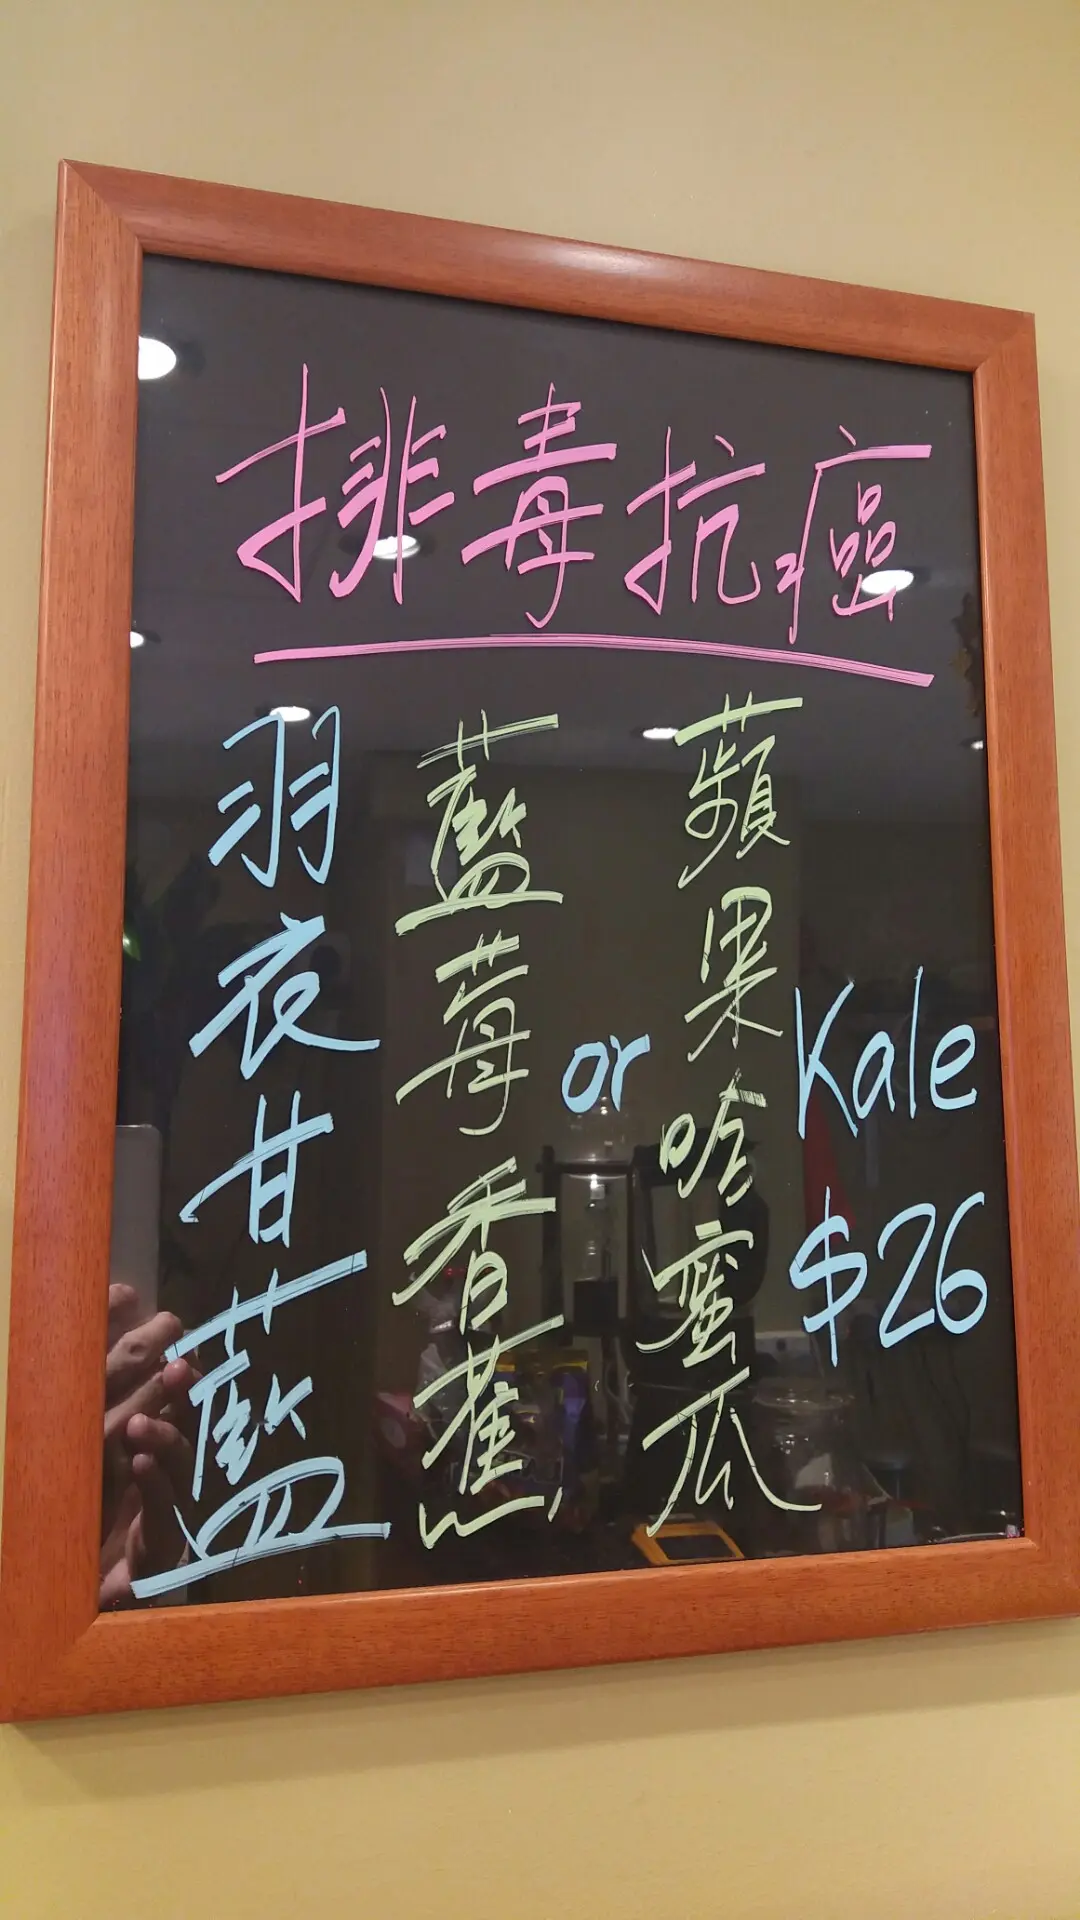 排毒抗癌
羽衣甘藍
藍莓香蕉
or
蘋果哈蜜瓜
Kale
$26